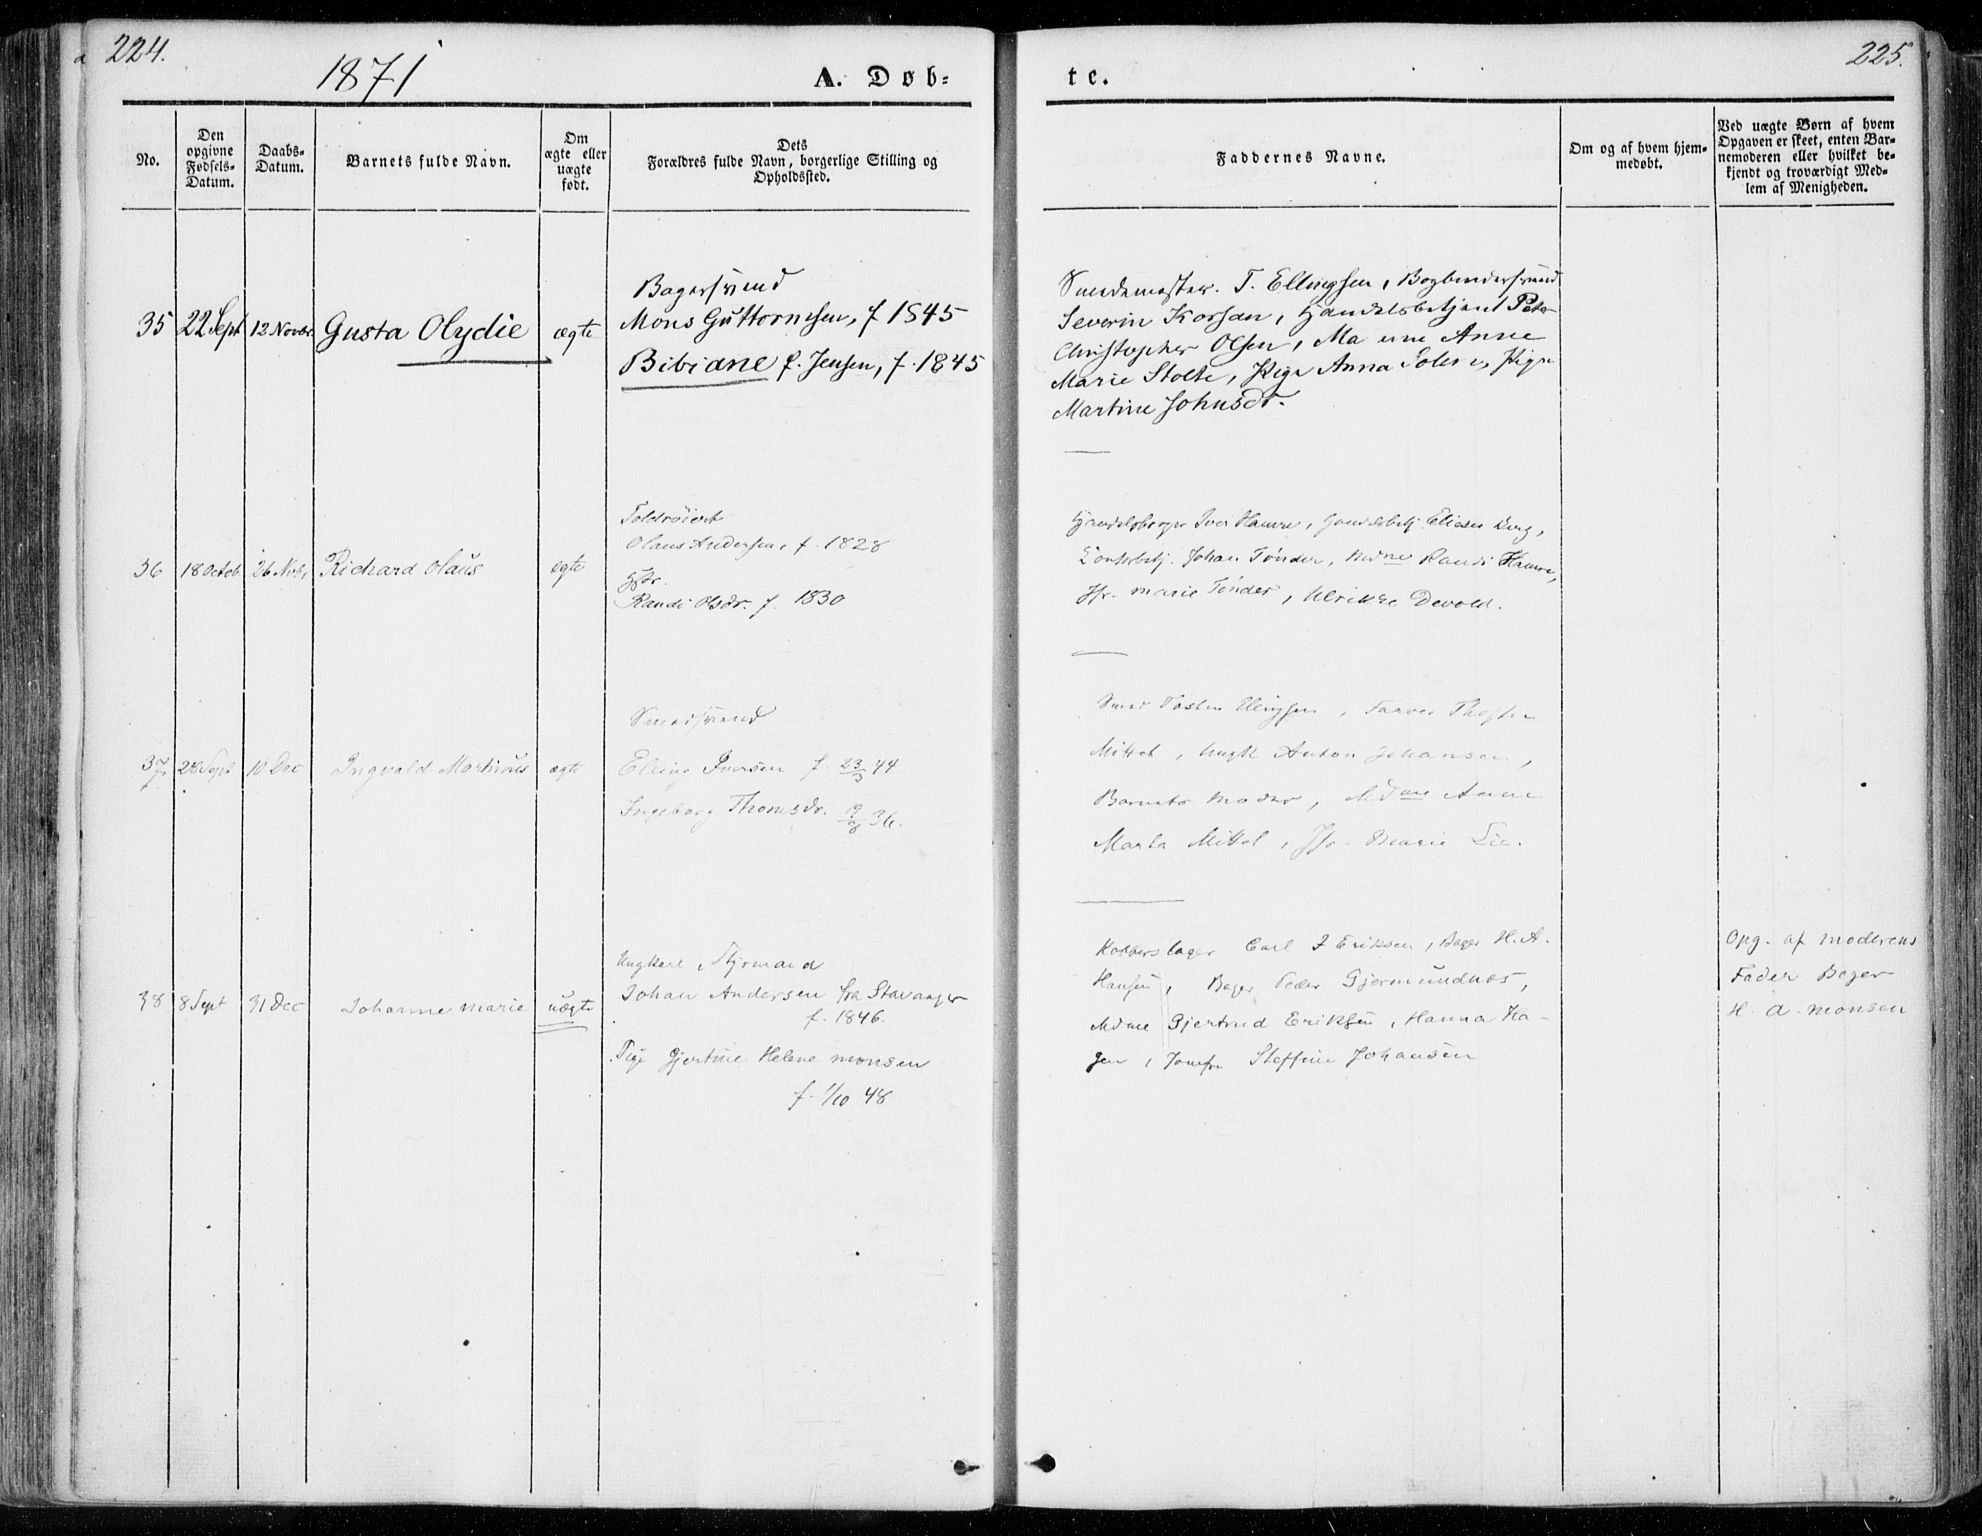 224.
1871
A. Døb-
te.
225.
No.
Den
opgivne
Fødsels-
Datum.
Daabs-
Datum.
Barnets fulde Navn.
Om
ægte eller
uægte
født.
Dets
Forældres fulde Navn, borgerlige Stilling og
Opholdssted.
Faddernes Navne.
Om og af hvem hjem-
medøbt.
Ved uægte Børn af hvem
Opgaven er skeet, enten Bar-
nemoderen eller hvilket be-
kjendt og troværdigt Med-
lem af Menigheden.
35
22 Sept
12 Novbr
Gusta Olydie
ægte
Bagersvend
Mons Guttormsen, f 1845
Bibiane f. Jensen, f. 1845
Smedemester. T. Ellingsen, Bogbindersvend
Severin Korsan, Handelsbetjent Peter
Christopher Olsen, Anne
Marie Stolte, Pige Anna Pige
Martine Johnsdr.
36
18 Octob
26 Nvbr
Richard Olaus
ægte
Olaus Andersen, f. 1828
Randi Olsdr. f. 1830
Iver Hamre, Handelsbetj. Elias Berg,
Johan Tønder, Mdme Randi Hamre,
Jfr. Marie Tønder, Ulrikke Devold.
37
28 Sept
10 Dec
Ingvald Martinus
ægte
Smedsvend
Elling Iversen f. 23/3 44
Ingeborg Thomsdr. 36.
Smed Ellingsen,
Mittet, Ungk Anton Johansen,
Barnets Moder, Mdme Anne
Marta Mittet, Jfr. Marie Lie.
38
8 Sept
31 Dec
Johanne Marie
uægte
Ungkarl, Styrmand
Johan Andersen fra Stavanger
f. 1846.
Pige Gjertine Helene Monsen
f. 1/10 48
Kobberslager Carl J Eriksen, Bager H. A.
Hansen, Bager Peder Gjermundnes,
Mdme Gjertrud Eriksen, Hanna Ha-
gen, Jomfr Steffine Johansen
Opg. af Moderens
Fader Bager
H. A. Monsen